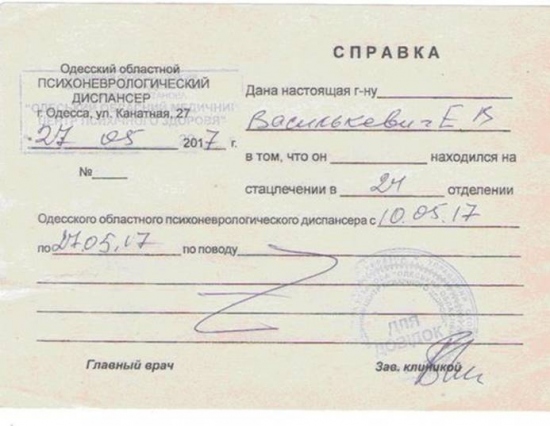 СПРАВКА
Одесский областной
ПСИХОНЕВРОЛОГИЧЕСКИЙ
ДИСПАНСЕР
г. Одесса, ул. Канатная, 27
27 05 2017 г.
№____
Дана настоящая г-ну
Василькевич Е В
в том, что он ____ находился на
стацлечении в 24 отделении
Одесского областного психоневрологического диспансера с 10.05.17
по 27.05.17 по поводу
ДЛЯ
ДОВІДОК
Главный врач
Зав. клиникой